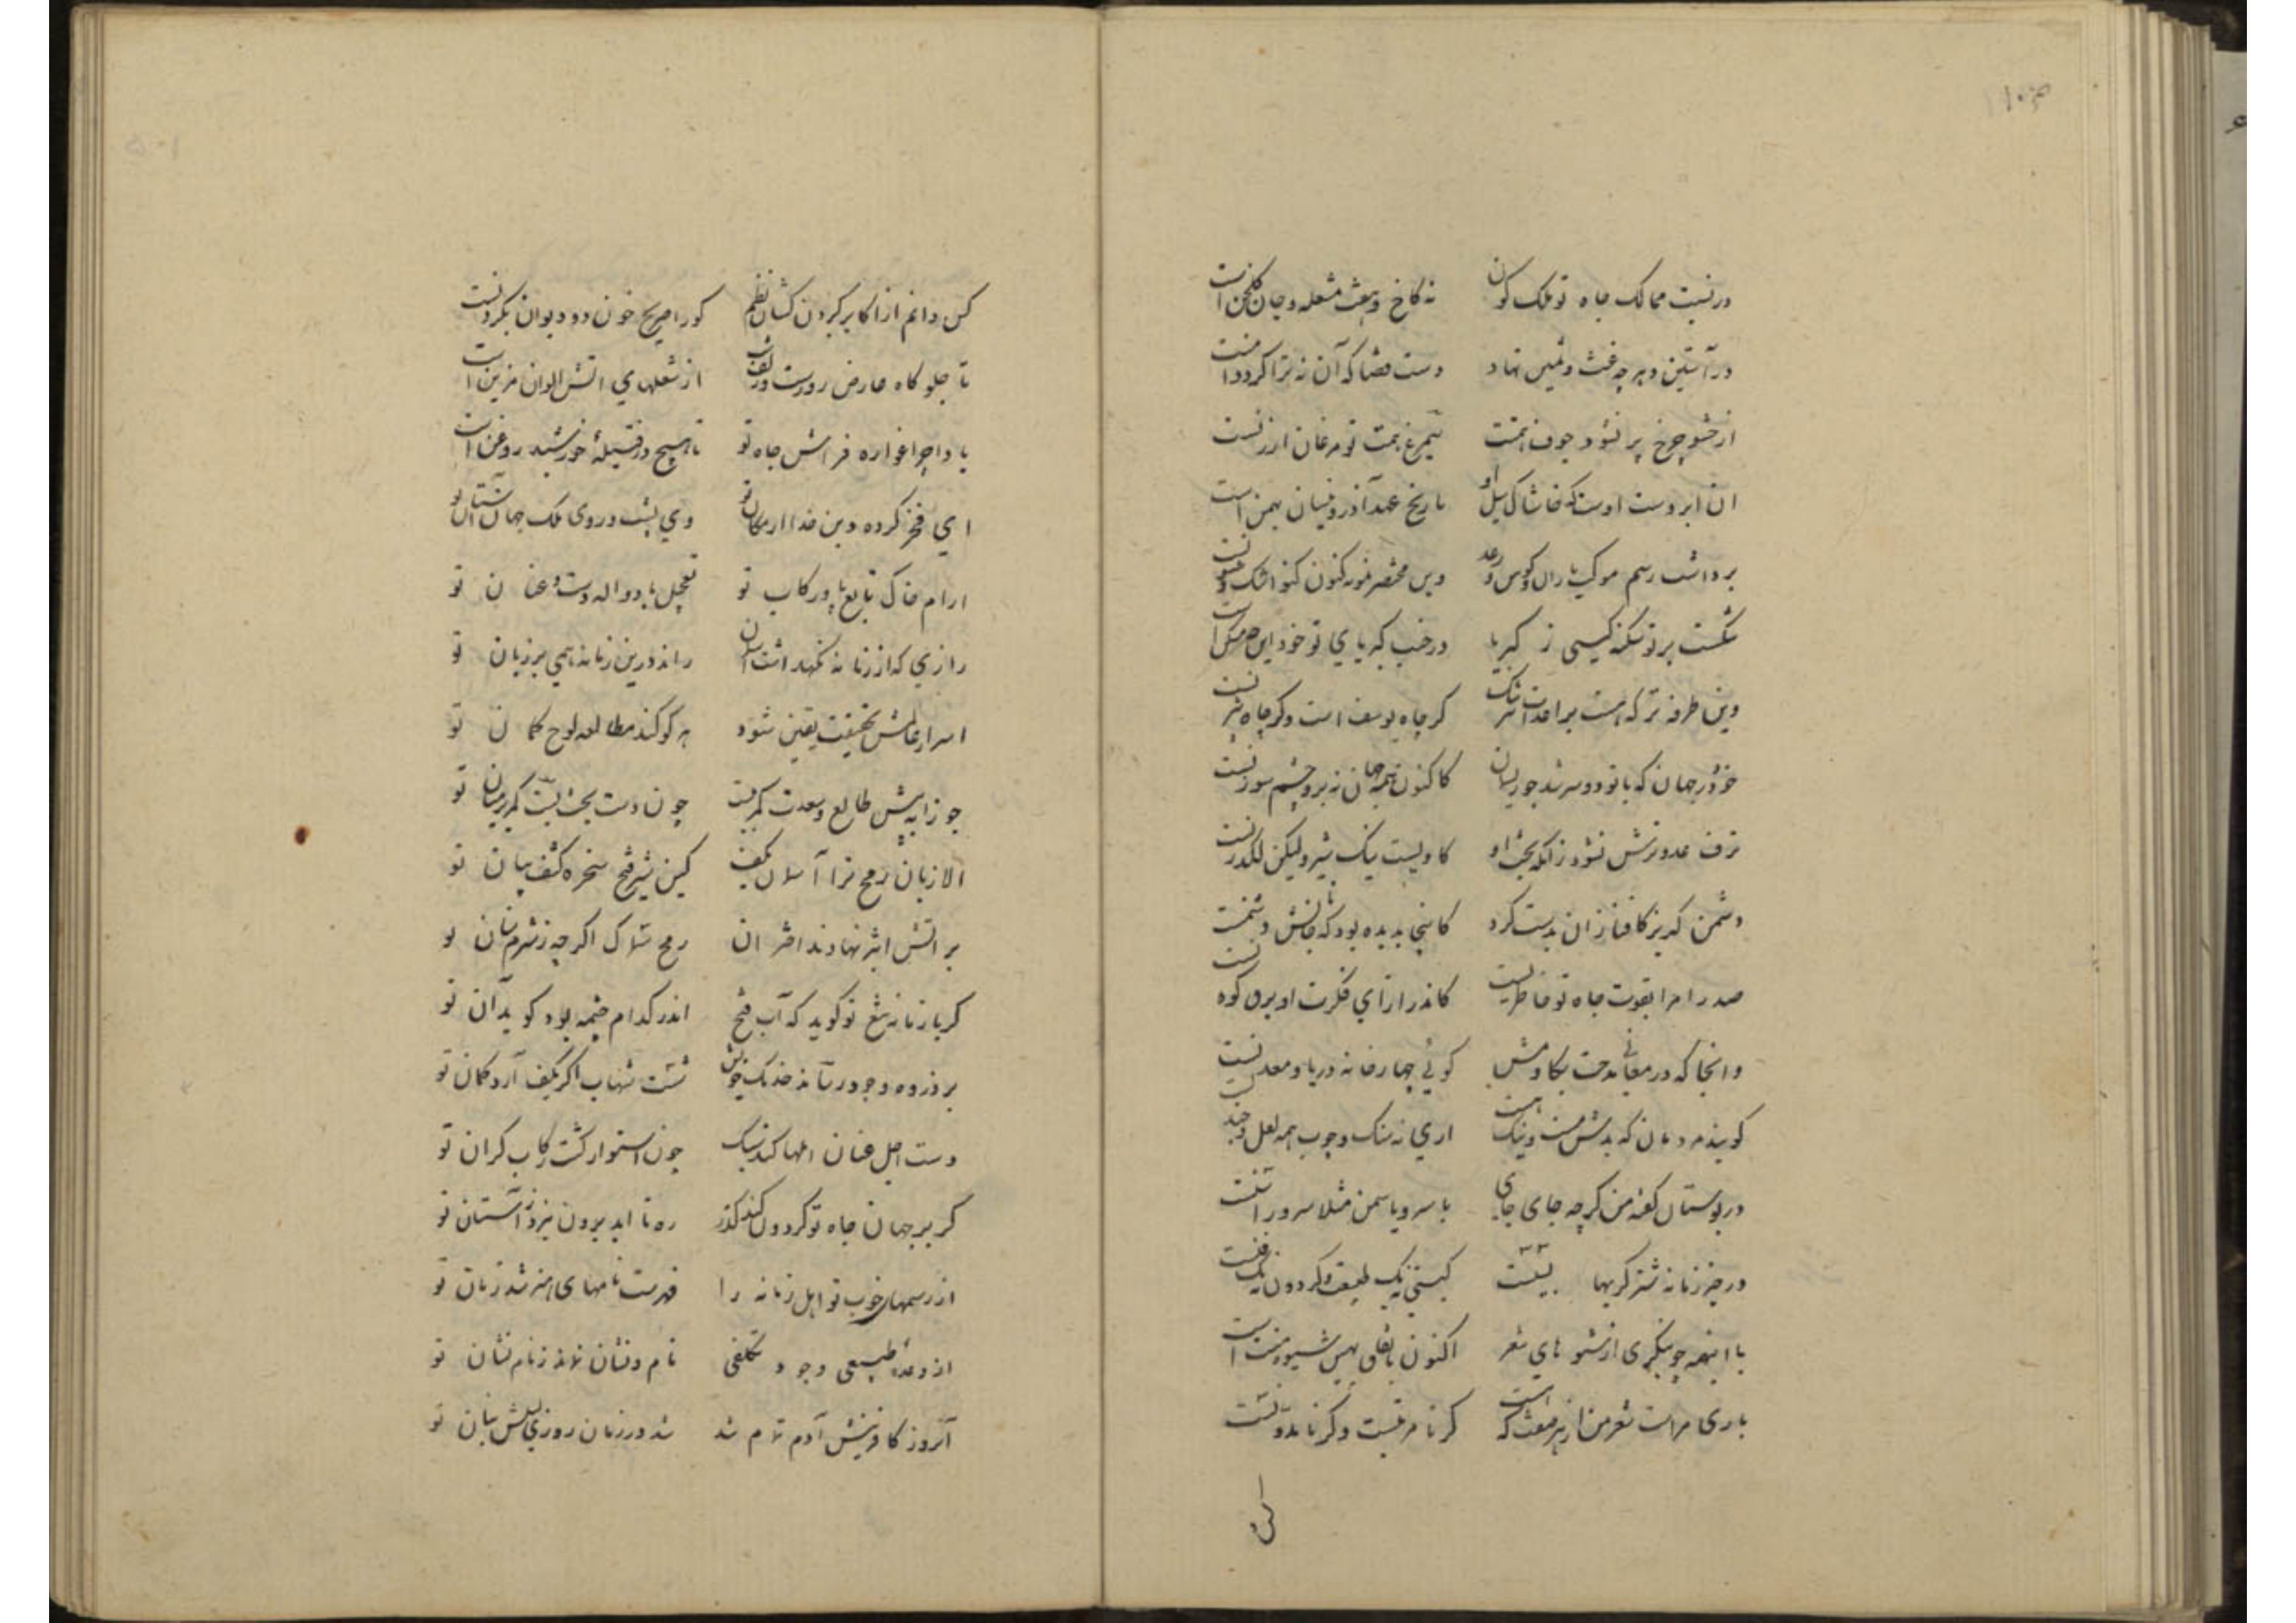 در نسبت ممالک جاه تو ملک کون نه کاخ و هفت مشعله و چار گلخن است
در آستین دهر چه غث و ثمین نهاد دست قضا که آن نه ترا گرد دامنست
از حشو چرخ پر نشود جوف همتت سیمرغ همت تو نه مرغان ارزنست
ان ابر دست اوست که خاشاک سیل او تاریخ عهد آذر و نیسان بهمن است
برداشت رسم موکب باران و کوس رعد وین مختصر نمونه کنون
شکست پر تو سکنه گیتی ز کبریا در جنب کبریای تو خود این چه مسکن است
وین طرفه تر که هست بر اعدات تنگ گر چاه یوسف است وگر چاه بیژنست
خود در جهان که با تو دو سر شد چو ریسمان کاکنون همه جهان نه برو چشم سوزنست
حرف عدو ترش نشود زانکه بخت او گاویست نیک شیر ولیکن لگدزنست
دشمن گریزگاه فنا زان بدست کرد کاینجا بدیده بود که جانش دشمنست
صدرا مرا بقوت جاه تو خاطریست کاندر ازای فکرت او برق کودنست
وانجا که در معانی مدحت بکاومش گویی چهارخانه دریا و معدنست
گویند مردمان که بدش هست و نیک است اری نه سنگ و چوب همه لعل و چندنست
در بوستان گفته من گرچه جای جای با سرو یاسمن مثلا سیر و راسنست
در حیز زمانه شتر گربها بسیست گیتی نه یک طبیعت و گردون نه یک فنست
با اینهمه چو بنگری از شیوهای شعر اکنون باتفاق بهین شیوه منست
باری مراست شعر من از هر صفت که هست گر نامرتبست وگر نامدونست
کس دانم از اکابر گردن کشان نظم کورا صریح خون دو دیوان بگردنست
تا جلوگاه عارض روزست و زلف شب از شعلهای آتش الوان مزین است
بادا چراغواره فراش جاه تو تا هیچ در فتیله خورشید روغن است
ای فخر کرده دین خدا از مکان تو وی پشت و روی ملک جهان آستان تو
ارام خاک تابع پا و رکاب تو تعجیل باد والهٔ دست و عنان تو
رازی که از زمانه نگهداشت آسمان راند درین زمانه همی بر زبان تو
اسرار عالمش بحقیقت یقین شود هر کو کند مطالعه لوح گمان تو
جوزا به پیش طالع سعدت کمر ببست چون دست بخت بست کمر بر میان تو
الا زبان رمح ترا آسمان نگفت کین شیر فتح سخره کشف بیان تو
بر آتش اثیر نهادند اختران رمح سماک اگرچه ز شرم سنان تو
گر با زمانه تیغ تو گوید که آب فتح اندر کدام چشمه بود گوید آن تو
بر ذروه وجود رساند خدنگ خویش شست شهاب اگر بکف آرد کمان تو
دست اجل عنان املها کند سبک چون استوار گشت رکاب گران تو
گر بر جهان جاه تو گردون کند گذر ره تا ابد برون نبرد ز آستان تو
از رسمهای خوب تو اهل زمانه را فهرست نامهای هنر شد زمان تو
از وعدهٔ طبیعی وجود تکلفی نام و نشان نماند ز نام نشان تو
آنروز کافرینش آدم تمام شد شد در زمان روزی نسلش بنان تو